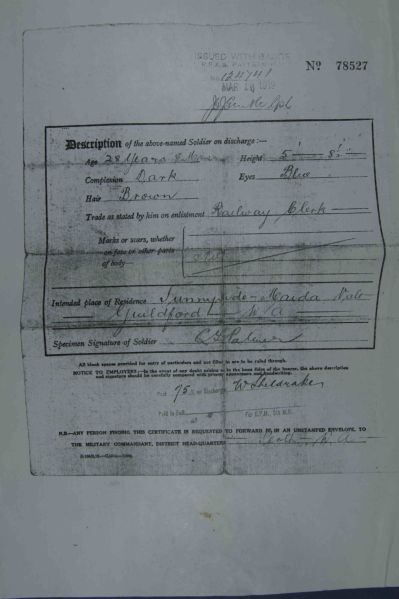 ISSUED WITH BADGE
No 78527
No. 124741
MAR 10 1919
Description of the above-named Soldier on discharge:—
Age 28 Years 8 Height 5' 8½"
Complexion Dark Eyes Blue
Hair Brown
Trade as stated by him on enlistment Railway Clerk
Marks or scars, whether
on face or other parts
of body
Intended place of Residence Sunnyside Maida Vale
Guildford W A
Specimen Signature of Soldier
All blank spaces provided for entry of particulars and not filled in are to be ruled through.
NOTICE TO EMPLOYERS.—In the event of any doubt arising as to the bona fides of the bearer, the above description
and signature should be carefully compared with present appearance and handwriting.
Paid 75 on discharge W Sheldrake
Paid in full
N.B.—ANY PERSON FINDING THIS CERTIFICATE IS REQUESTED TO FORWARD IT, IN AN UNSTAMPED ENVELOPE, TO
THE MILITARY COMMANDANT, DISTRICT HEAD-QUARTERS Perth W. A